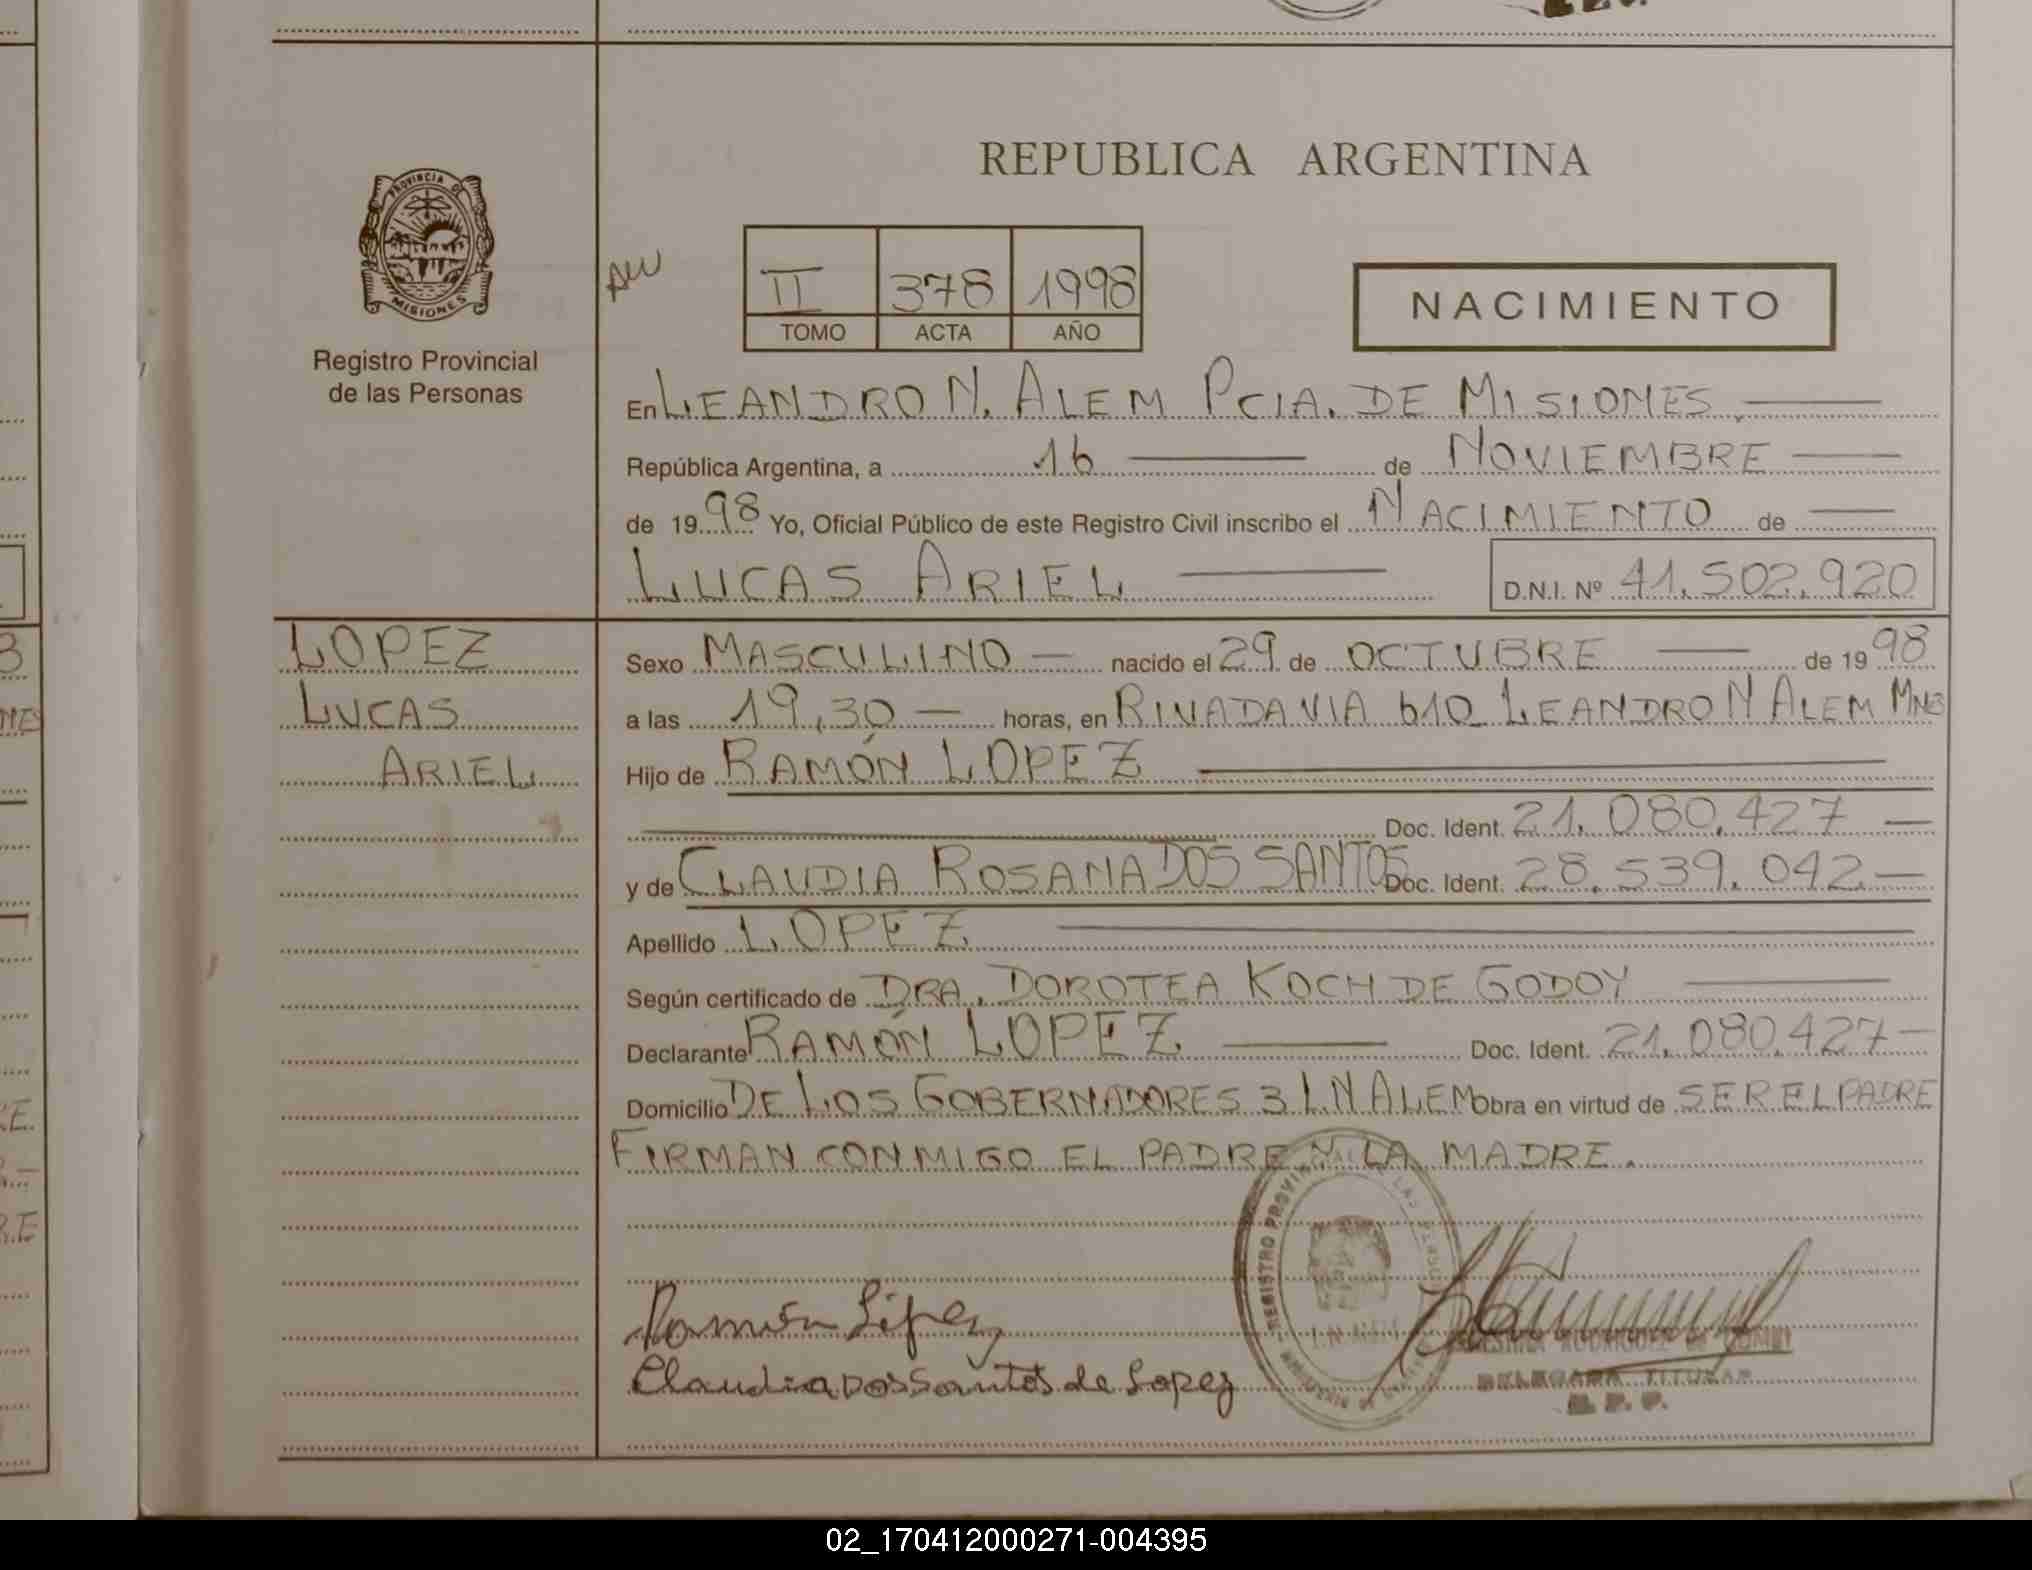 REPUBLICA ARGENTINA
PROVINCIA DE
MISIONES
Registro Provincial
de las Personas
II 378 1998
TOMO ACTA AÑO
NACIMIENTO
En LEANDRO N. ALEM PCIA. DE MISIONES.
República Argentina, a 16 de NOVIEMBRE
de 1998 Yo, Oficial Público de este Registro Civil inscribo el NACIMIENTO de
LUCAS ARIEL D.N.I. Nº 41.502.920
LOPEZ
LUCAS
ARIEL
Sexo MASCULINO nacido el 29 de OCTUBRE de 1998
a las 19,30 horas, en RIVADAVIA 610 LEANDRO N ALEM MNES
Hijo de RAMÓN LOPEZ
Doc. Ident. 21.080.427
y de CLAUDIA ROSANA DOS SANTOS Doc. Ident. 28.539.042
Apellido LOPEZ
Según certificado de DRA. DOROTEA KOCH DE GODOY
Declarante RAMÓN LOPEZ Doc. Ident. 21.080.427
Domicilio DE LOS GOBERNADORES 3 L.N ALEM Obra en virtud de SER EL PADRE
FIRMAN CONMIGO EL PADRE Y LA MADRE.
REGISTRO PROVINCIAL DE LAS PERSONAS
Ramón López
Claudia Dos Santos de Lopez
RODRIGUEZ de
DELEGADA TITULAR
R. P. P.
02_170412000271-004395